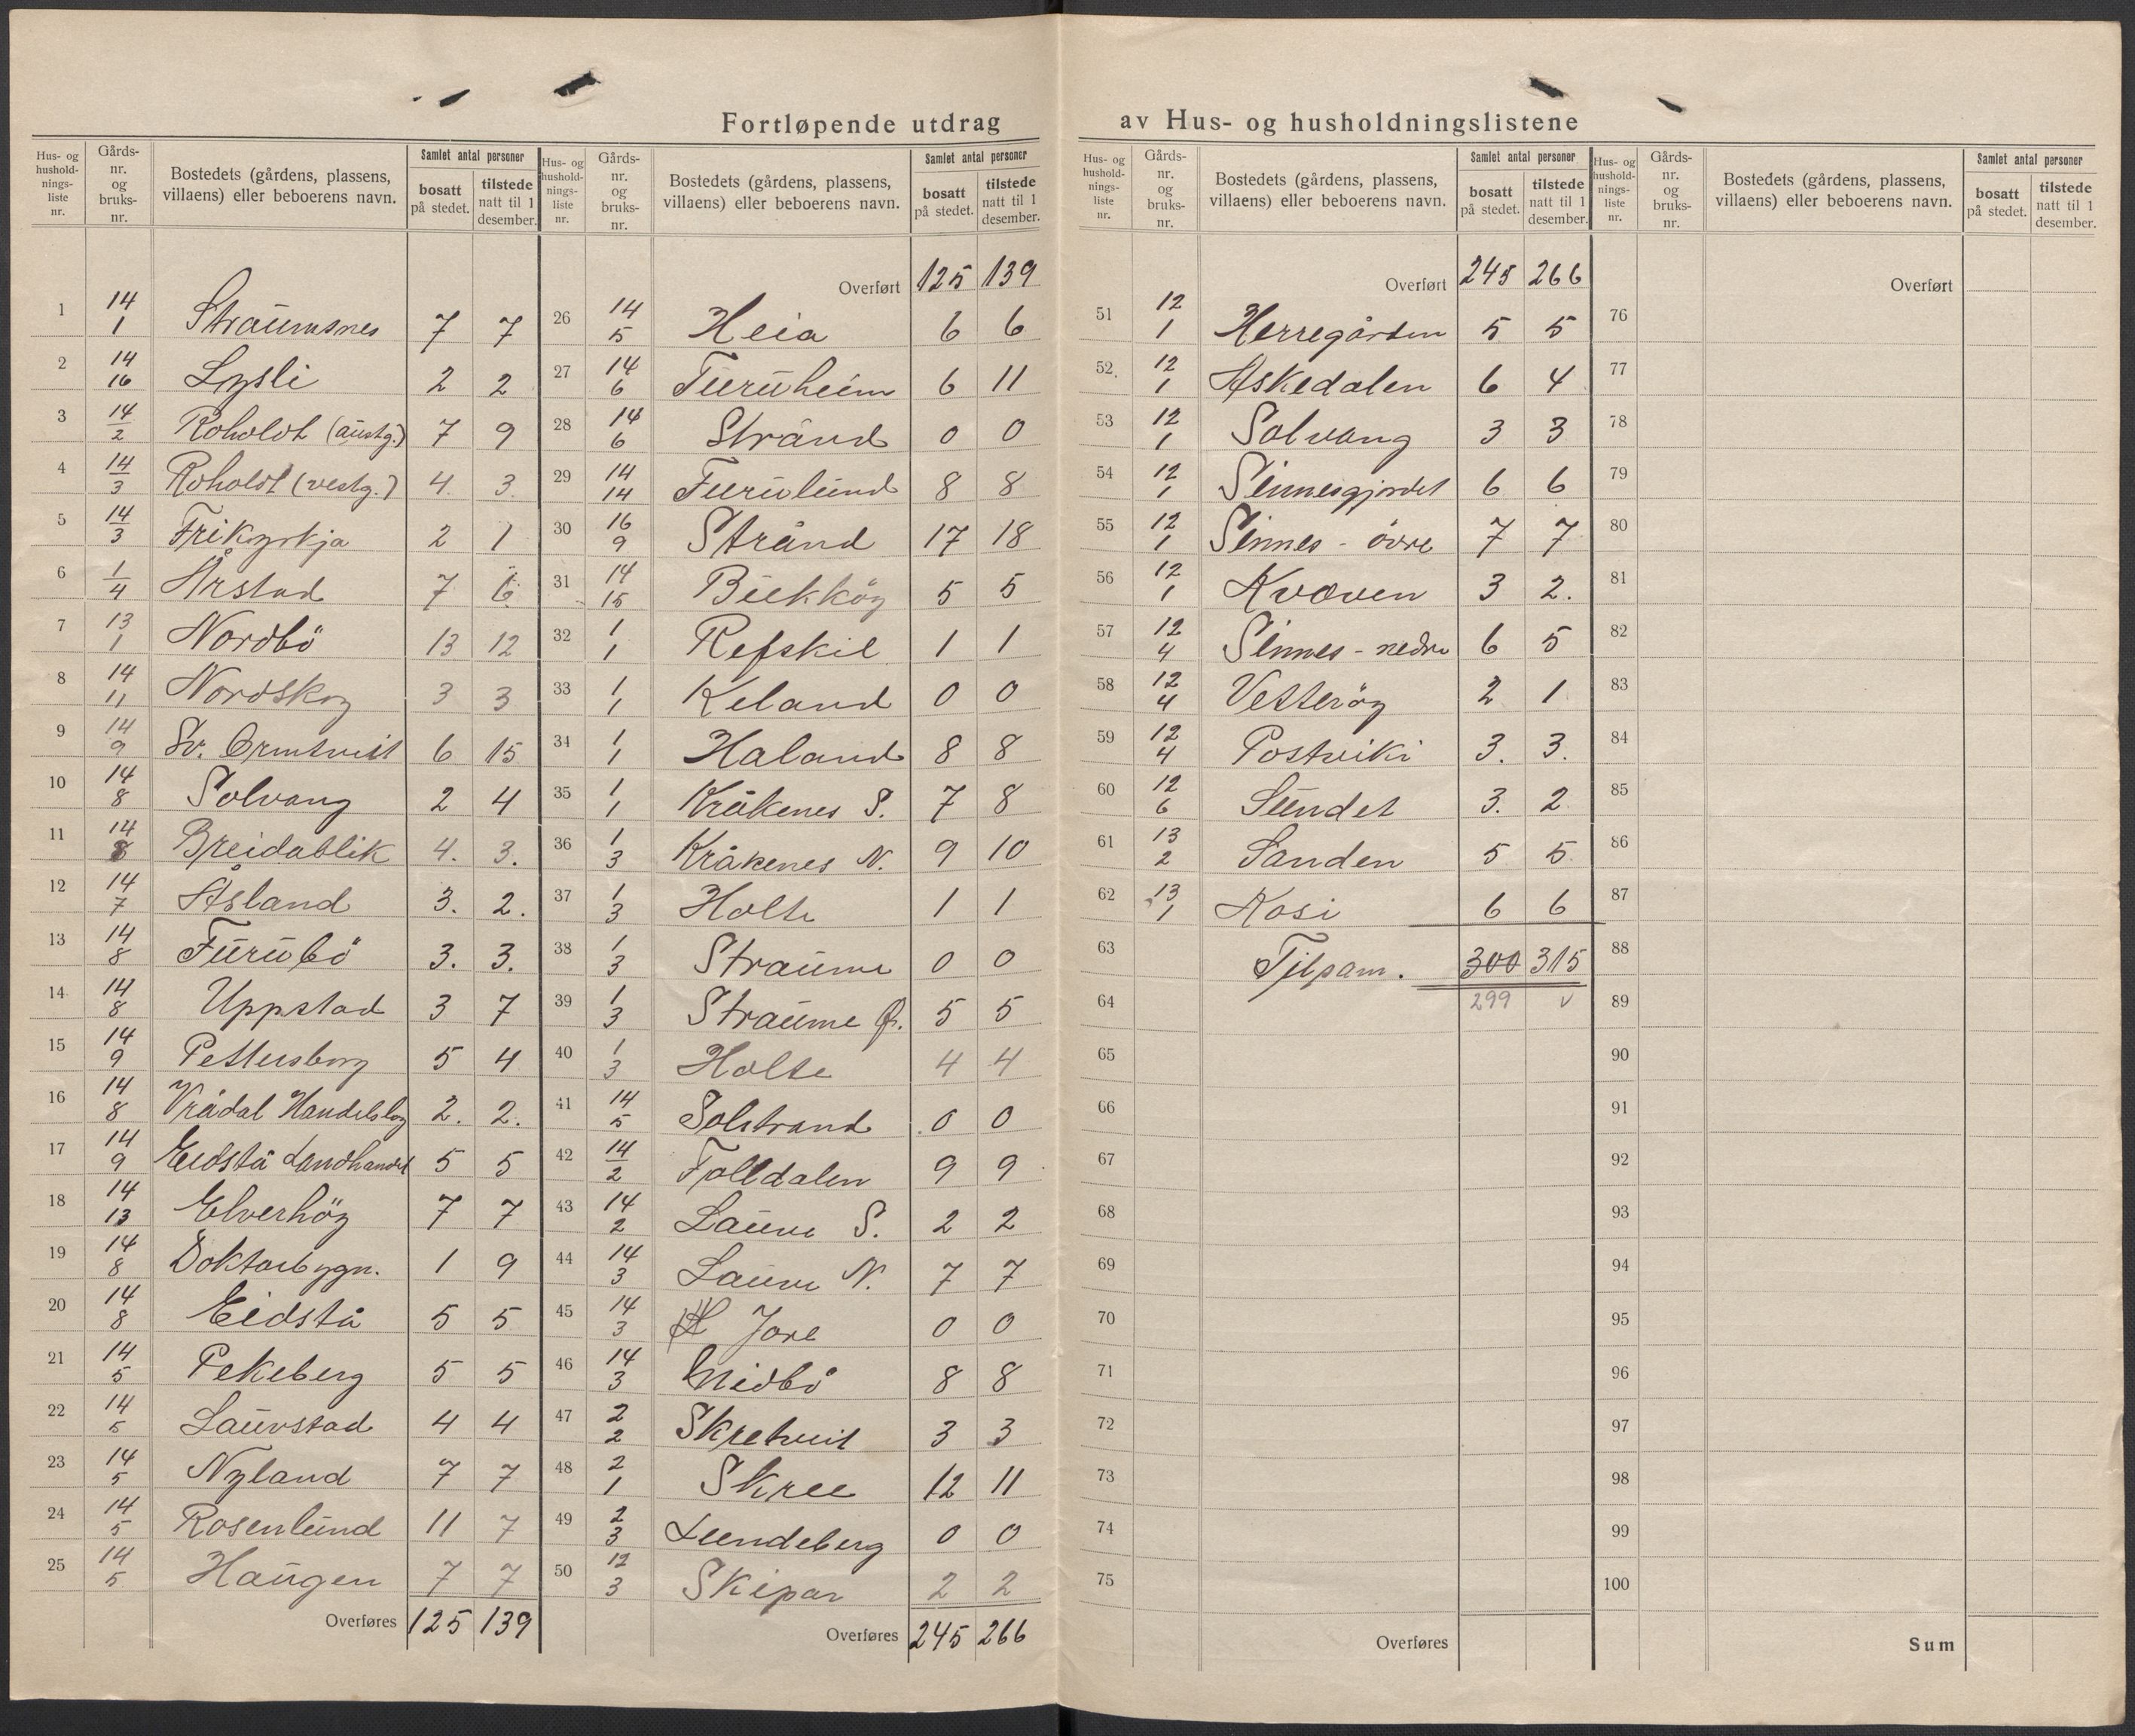 Fortløpende utdrag av Hus- og husholdningslistene
Hus- og husholdnings- liste nr. | Gårds- nr. og bruks- nr. | Bostedets (gårdens, plassens, villaens) eller beboerens navn. | Samlet antal personer | bosatt på stedet. | tilstede natt til 1 desember.
1 14/1 Straumsnes 7 7
2 14/16 Lysli 2 2
3 14/2 Roholdt (austg.) 7 9
4 14/3 Roholdt (vestg.) 4. 3.
5 14/3 Frikyrkja 2 1
6 1/4 Årstad 7 6
7 13/1 Nordbö 13 12
8 14/11 Nordskog 3 3
9 14/9 Sv. Ormtveit 6 15
10 14/8 Solvang 2 4
11 14/8 Breidablik 4. 3.
12 14/7 Åsland 3. 2.
13 14/8 Furubö 3. 3.
14 14/8 Uppstad 3 7
15 14/9 Pettersborg 5 4
16 14/8 Vrådal Handelslag 2. 2.
17 14/9 Eidstå Landhandel 5 5
18 14/13 Elverhöy 7 7
19 14/8 Doktorbygn. 1 9
20 14/8 Eidstå 5 5
21 14/5 Pekeberg 5 5
22 14/5 Lauvstad 4 4
23 14/5 Nyland 7 7
24 14/5 Rosenlund 11 7
25 14/5 Haugen 7 7
Overføres 125 139
Hus- og husholdnings- liste nr. | Gårds- nr. og bruks- nr. | Bostedets (gårdens, plassens, villaens) eller beboerens navn. | Samlet antal personer | bosatt på stedet. | tilstede natt til 1 desember.
Overført 125 139
26 14/5 Heia 6 6
27 14/6 Furuheim 6 11
28 14/6 Strånd 0 0
29 14/14 Furulund 8 8
30 16/9 Strånd 17 18
31 14/15 Bukköy 5 5
32 1/1 Refskil 1 1
33 1/1 Keland 0 0
34 1/1 Haland 8 8
35 1/1 Kråkenes S. 7 8
36 1/3 Kråkenes N. 9 10
37 1/3 Holte 1 1
38 1/3 Straume 0 0
39 1/3 Straume Ø. 5 5
40 1/3 Holte 4 4
41 14/5 Solstrand 0 0
42 14/2 Folldalen 9 9
43 14/2 Lauve S. 2 2
44 14/3 Lauve N. 7 7
45 14/3 Jore 0 0
46 14/3 Midbö 8 8
47 2/2 Skretveit 3 3
48 2/1 Skree 12 11
49 2/3 Lundeberg 0 0
50 12/3 Skipar 2 2
Overføres 245 266
Hus- og husholdnings- liste nr. | Gårds- nr. og bruks- nr. | Bostedets (gårdens, plassens, villaens) eller beboerens navn. | Samlet antal personer | bosatt på stedet. | tilstede natt til 1 desember.
Overført 245 266
51 12/1 Herregården 5 5
52. 12/1 Askedalen 6 4
53 12/1 Solvang 3 3
54 12/1 Sinnesgjordet 6 6
55 12/1 Sinnes - övre 7 7
56 12/1 Kvæven 3 2.
57 12/4 Sinnes - nedre 6 5
58 12/4 Vetteröy 2 1
59 12/4 Postviki 3. 3.
60 12/6 Sundet 3. 2
61 13/2 Sanden 5 5
62 13/1 Kosi 6 6
63 Tilsam. 300 315
64 299 v
65
66
67
68
69
70
71
72
73
74
75
Overføres
Hus- og husholdnings- liste nr. | Gårds- nr. og bruks- nr. | Bostedets (gårdens, plassens, villaens) eller beboerens navn. | Samlet antal personer | bosatt på stedet. | tilstede natt til 1 desember.
Overført
76
77
78
79
80
81
82
83
84
85
86
87
88
89
90
91
92
93
94
95
96
97
98
99
100
Sum